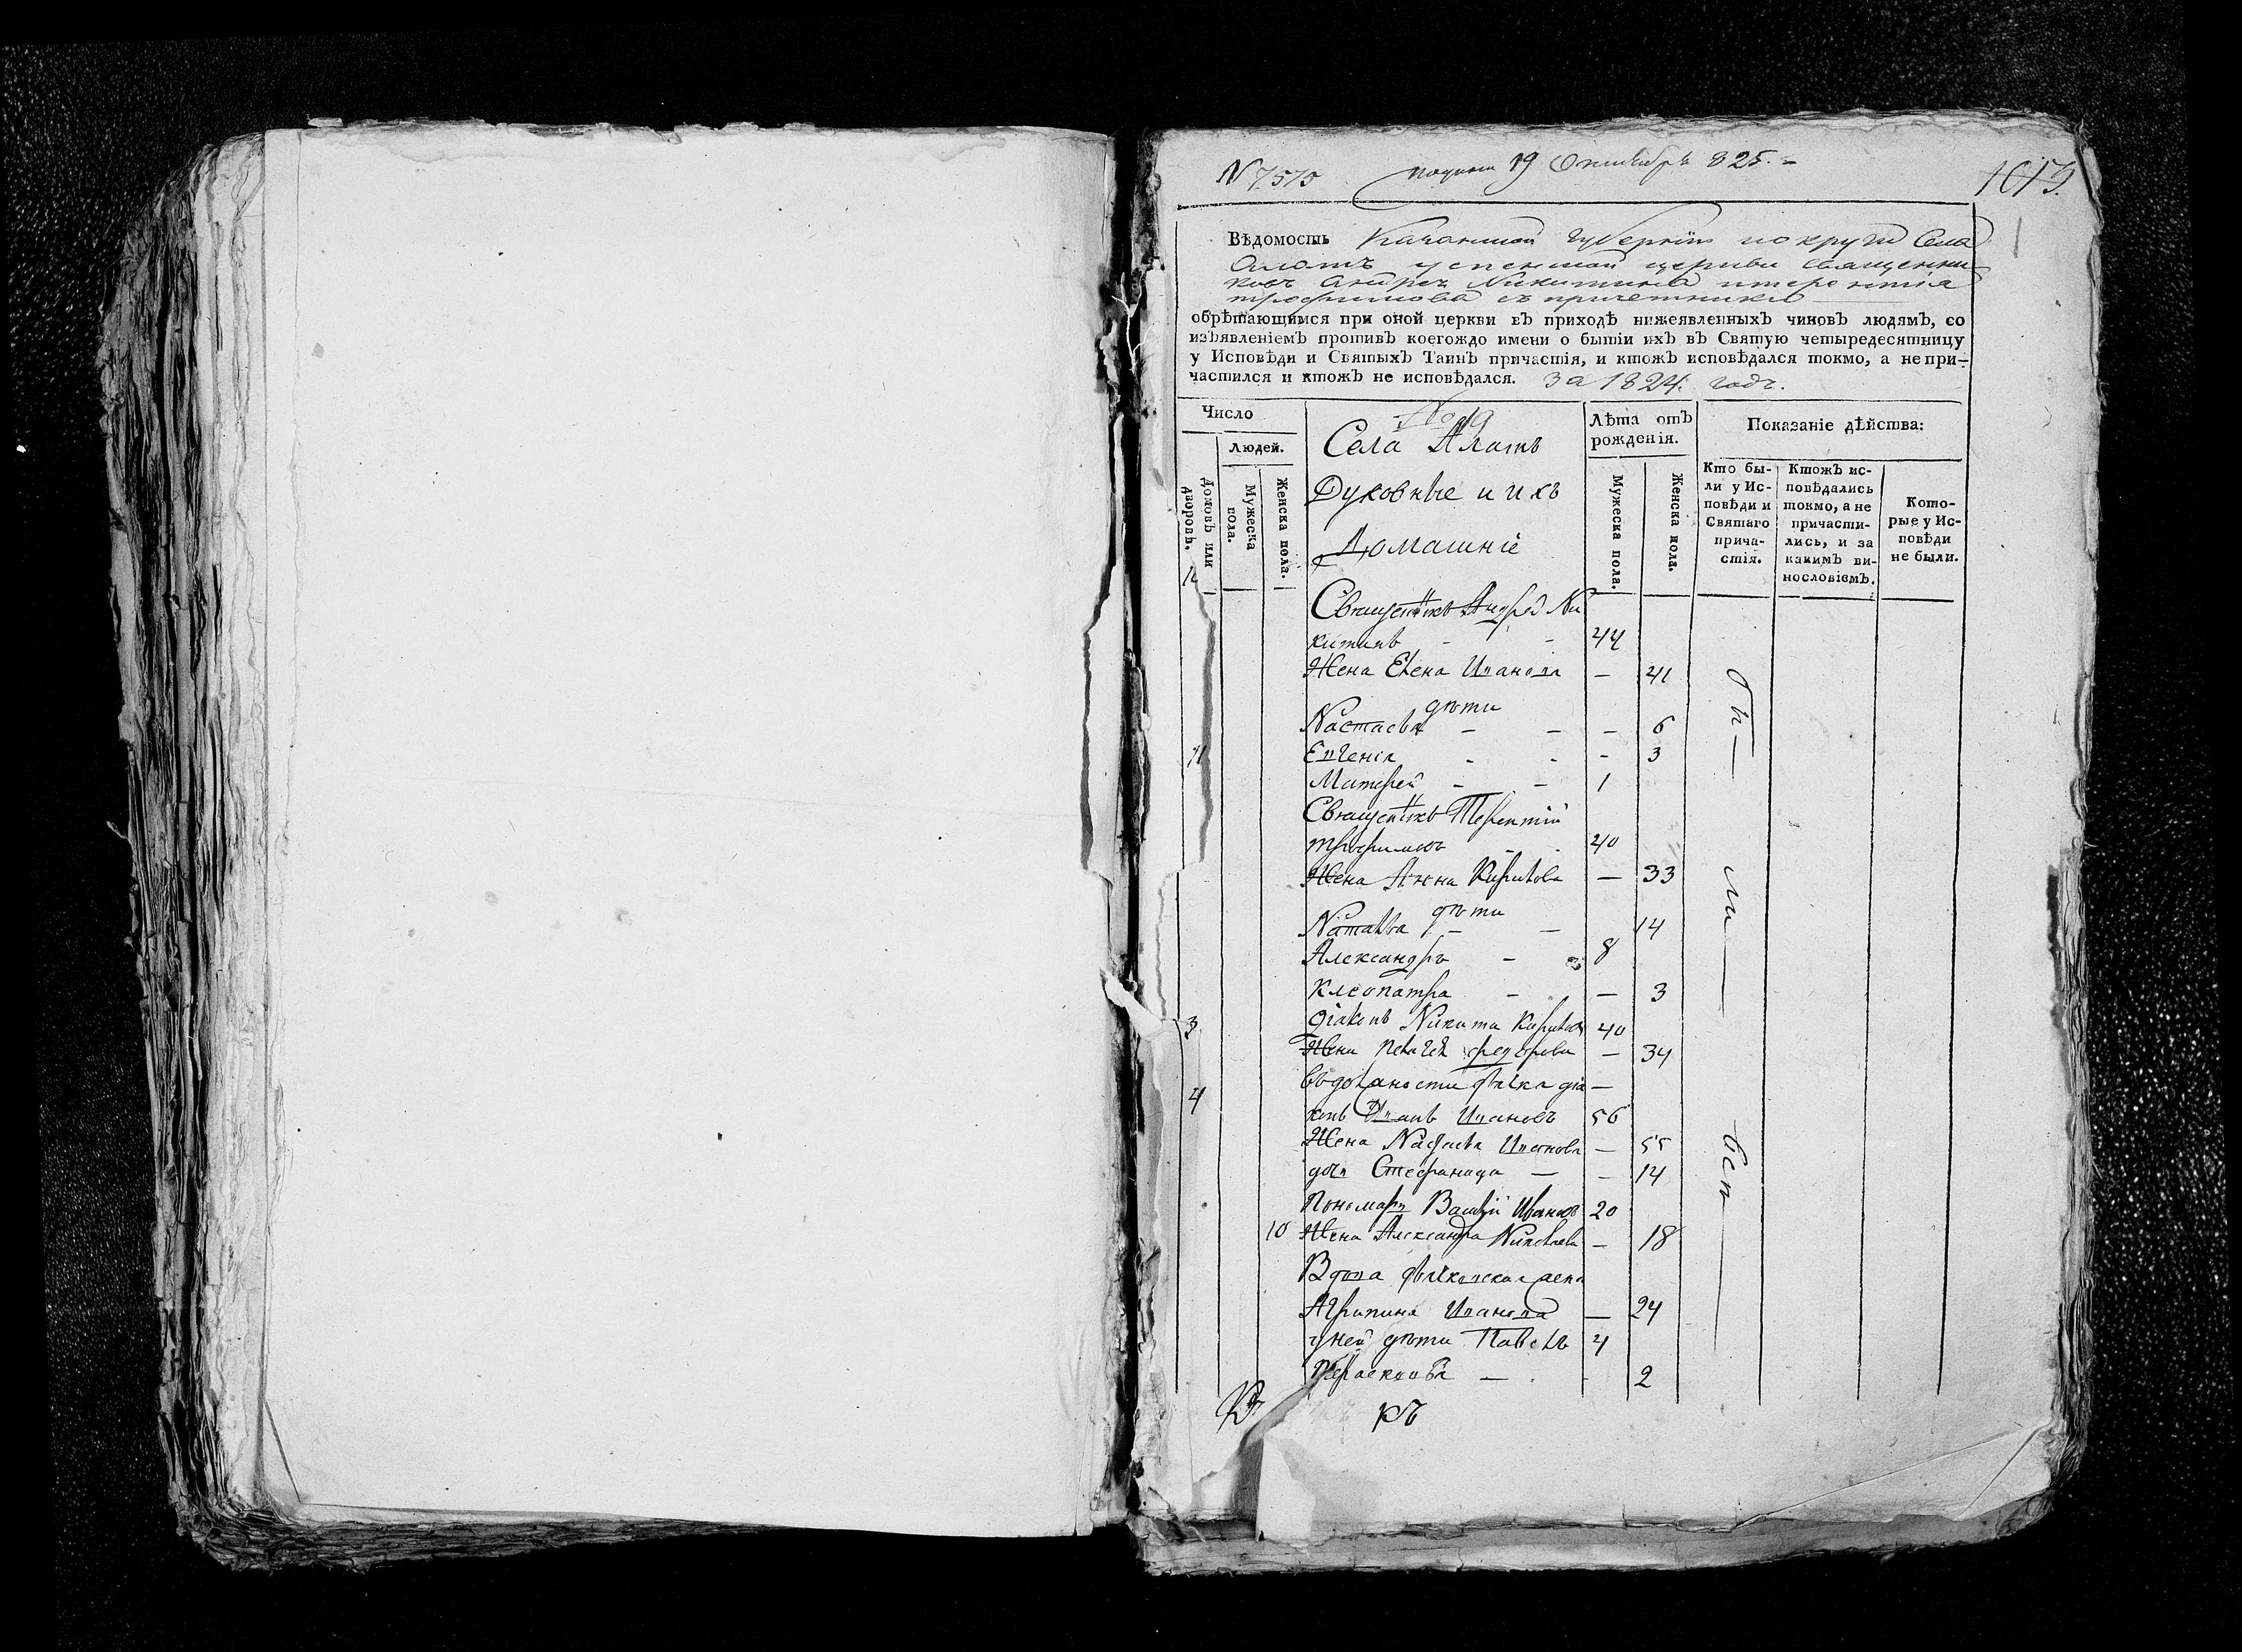 N 7515 получен 19 Октября 825.–
1015.
Вѣдомость Казанской губернiи округи Села
Алатъ успенской церкви священни
ковъ Андрея Никитина итерентiя
трофимова съ причетники
обрѣтающимся при оной церкви въ приходѣ нижеявленныхъ чиновъ людямъ, со
изъявленiемъ противъ коегождо имени о бытiи ихъ въ Святую четыредесятницу
у Исповѣди и Святыхъ Таинъ причастiя, и ктожъ исповѣдался токмо, а не при-
частился и ктожъ не исповѣдался. За 1824. годъ.
Число
Людей.
Домовъ или дворовъ.
Мужеска пола.
Женска пола.
No 19
Села Алатъ
Духовные и ихъ
Домашнiе
Лѣта отъ рожденiя.
Мужеска пола.
Женска пола.
Показанiе дѣйства:
Кто были у Исповѣди и Святаго причастiя.
Ктожъ исповѣдались токмо, а не причастились, и за какимъ винословiемъ.
Которые у Исповѣди не были.
Священникъ Андрей Ни
китинъ - - 44
Жена Елена Иванова — 41
дѣти
Настасья — — — 6
Евгенiя - - - 3
Матфей - — 1
Священникъ Терентiй
трофимовъ - - 40
Жена Анна Кирилова — 33
дѣти
Наталья — — 14
Александръ — 8
Клеопатра — — 3
3 дiаконъ Никита Кириловъ 40
Жена Пелагея федорова — 34
4 дiа —
конъ Иванъ Ивановъ 56
Жена Иванова — 55
дочь Стефанида — — 14
Пономарь Василiй Ивановъ 20
10 Жена Александра Николаева — 18
Вдова жена
Агрипина Иванова — 24
уней дѣти Павелъ 4
Парасковья — - 2
бы — ли — всѣ —